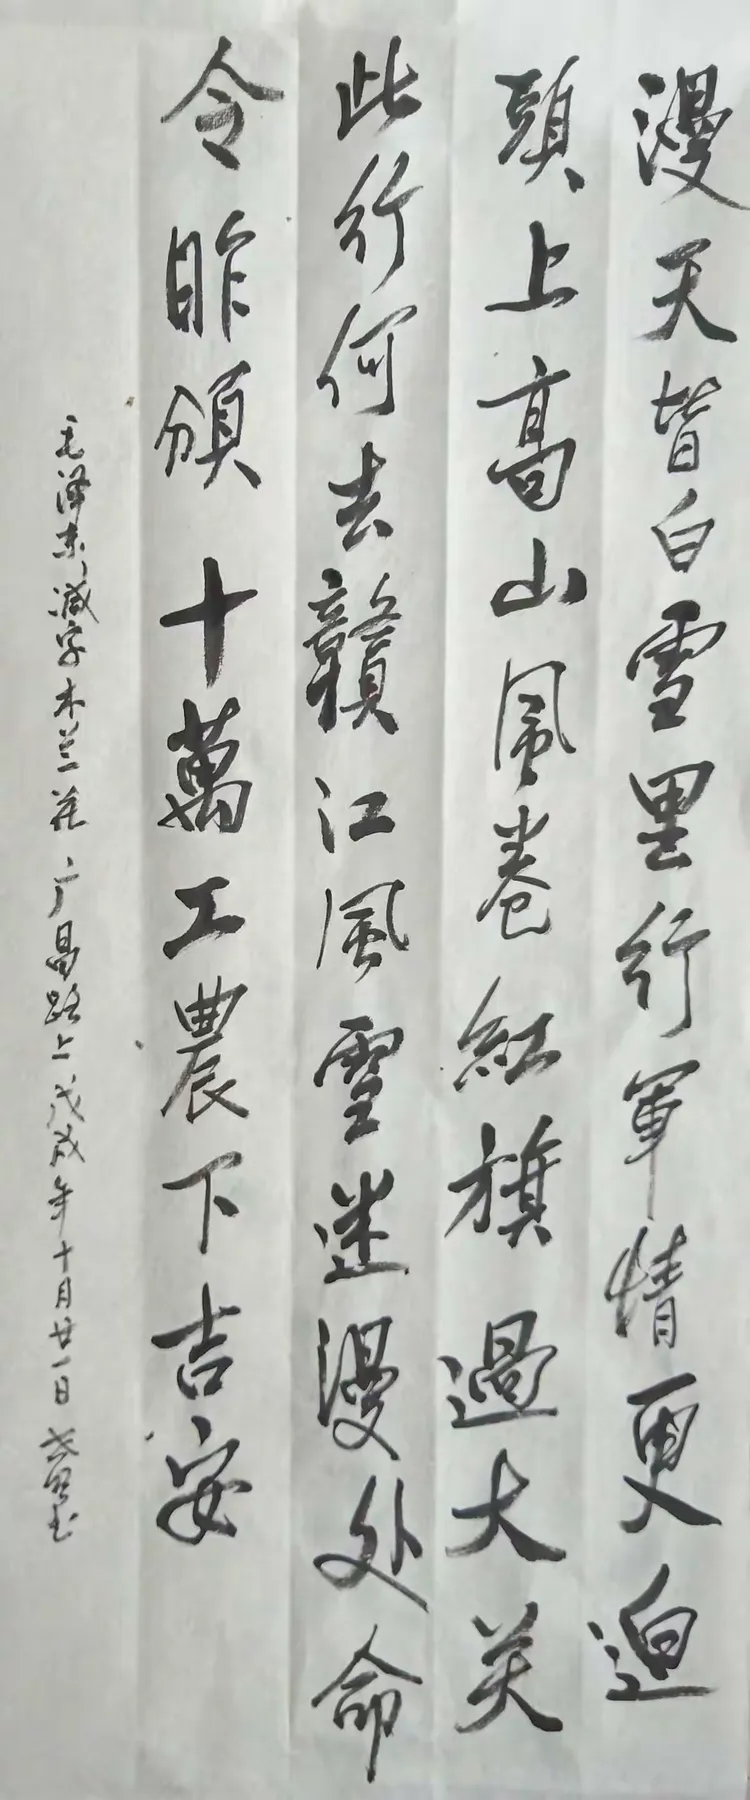 漫天皆白雪里行軍情更迫
頭上高山風卷紅旗過大关
此行何去贛江風雪迷漫处命
令昨頒十萬工農下吉安
毛泽东减字木兰花广昌路上戊戌年十月廿一日